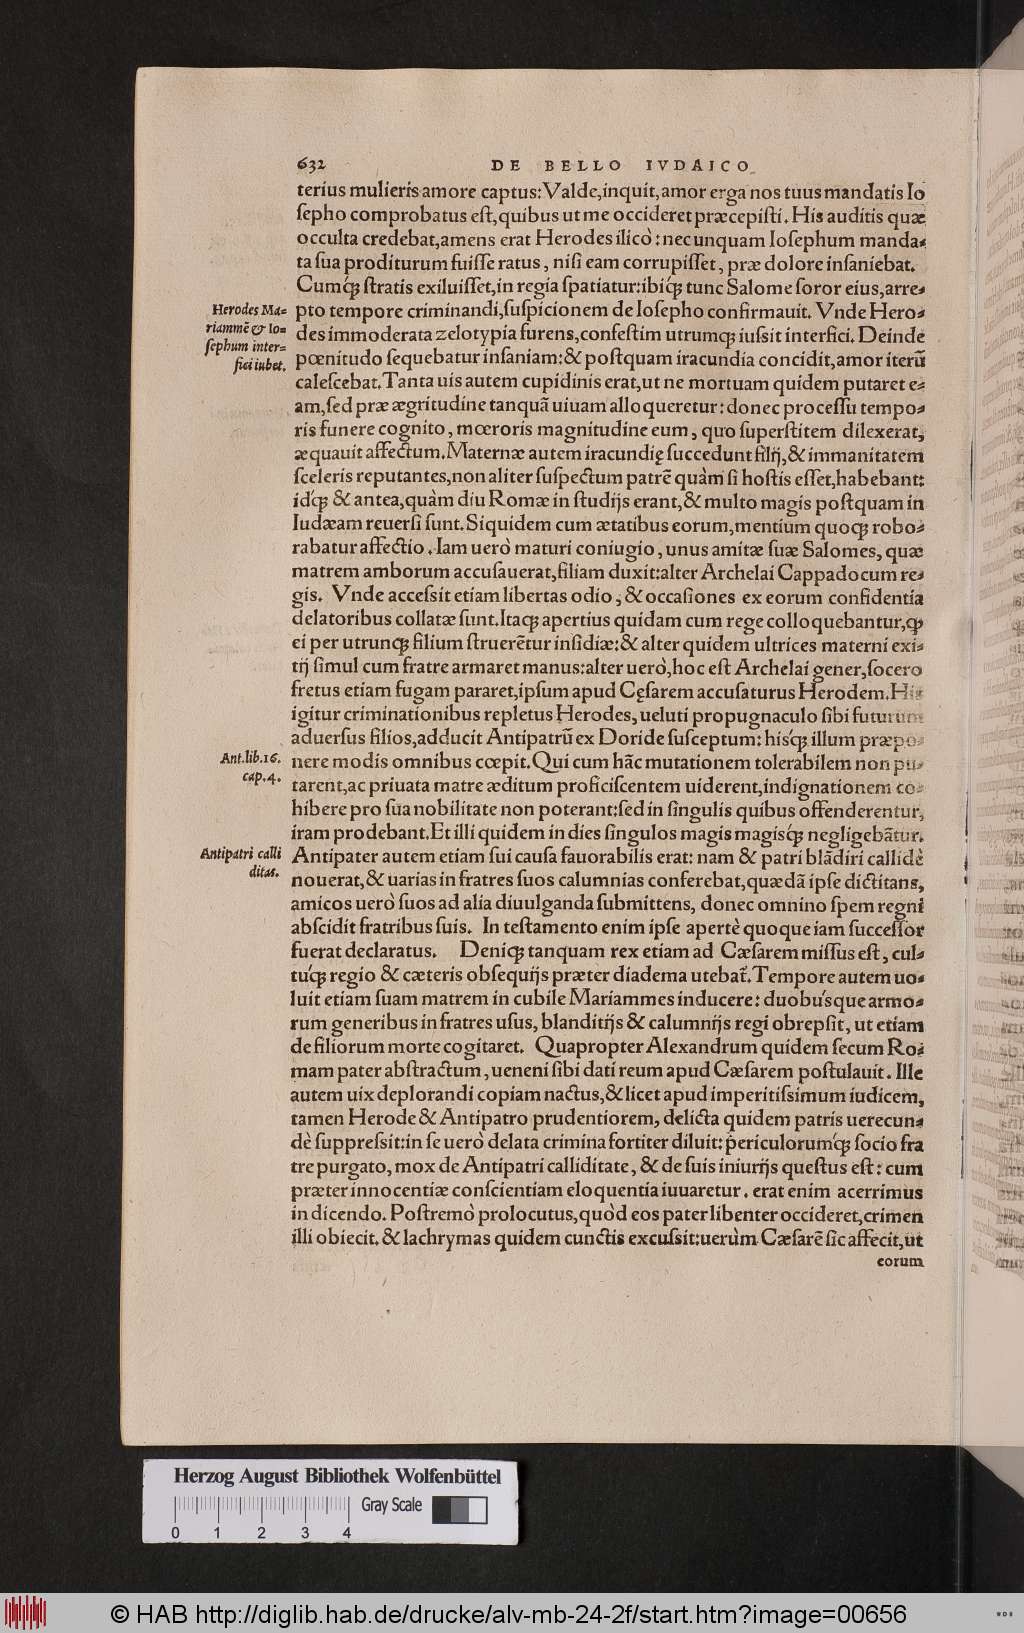 632 DE BELLO IVDAICO
terius mulieris amore captus: Valde, inquit, amor erga nos tuus mandatis Io
ſepho comprobatus eſt, quibus ut me occideret præcepiſti. His auditis quæ
occulta credebat, amens erat Herodes ilicò: nec unquam Ioſephum manda-
ta ſua proditurum fuiſſe ratus, niſi eam corrupiſſet, præ dolore inſaniebat.
Cumq́; ſtratis exiluiſſet, in regia ſpatiatur: ibiq́; tunc Salome ſoror eius, arre-
pto tempore criminandi, ſuſpicionem de Ioſepho confirmauit. Vnde Hero-
des immoderata zelotypia furens, confeſtim utrumq; iuſsit interfici. Deinde
pœnitudo ſequebatur inſaniam: & poſtquam iracundia concidit, amor iterũ
caleſcebat. Tanta uis autem cupidinis erat, ut ne mortuam quidem putaret e-
am, ſed præ ægritudine tanquã uiuam alloqueretur: donec proceſſu tempo-
ris funere cognito, mœroris magnitudine eum, quo ſuperſtitem dilexerat,
æquauit affectum. Maternæ autem iracundię ſuccedunt filij, & immanitatem
ſceleris reputantes, non aliter ſuſpectum patrē quàm ſi hoſtis eſſet, habebant:
idq́; & antea, quàm diu Romæ in ſtudijs erant, & multo magis poſtquam in
Iudæam reuerſi ſunt. Siquidem cum ætatibus eorum, mentium quoq; robo-
rabatur affectio. Iam uerò maturi coniugio, unus amitæ ſuæ Salomes, quæ
matrem amborum accuſauerat, filiam duxit: alter Archelai Cappadocum re-
gis. Vnde acceſsit etiam libertas odio, & occaſiones ex eorum confidentia
delatoribus collatæ ſunt. Itaq; apertius quidam cum rege colloquebantur, q;
ei per utrunq; filium ſtruerētur inſidiæ: & alter quidem ultrices materni exi-
tij ſimul cum fratre armaret manus: alter uerò, hoc eſt Archelai gener, ſocero
fretus etiam fugam pararet, ipſum apud Cęſarem accuſaturus Herodem. His
igitur criminationibus repletus Herodes, ueluti propugnaculo ſibi futurum
aduerſus filios, adducit Antipatrũ ex Doride ſuſceptum: hisq́; illum præpo-
nere modis omnibus cœpit. Qui cum hãc mutationem tolerabilem non pu-
tarent, ac priuata matre æditum proficiſcentem uiderent, indignationem co-
hibere pro ſua nobilitate non poterant: ſed in ſingulis quibus offenderentur,
iram prodebant. Et illi quidem in dies ſingulos magis magisq́; negligebãtur.
Antipater autem etiam ſui cauſa fauorabilis erat: nam & patri blãdiri callidè
nouerat, & uarias in fratres ſuos calumnias conferebat, quædã ipſe dictitans,
amicos uerò ſuos ad alia diuulganda ſubmittens, donec omnino ſpem regni
abſcidit fratribus ſuis. In teſtamento enim ipſe apertè quoque iam ſucceſſor
fuerat declaratus. Deniq; tanquam rex etiam ad Cæſarem miſſus eſt, cul-
tuq́; regio & cæteris obſequijs præter diadema utebat̃. Tempore autem uo-
luit etiam ſuam matrem in cubile Mariammes inducere: duobúsque armo-
rum generibus in fratres uſus, blanditijs & calumnijs regi obrepſit, ut etiam
de filiorum morte cogitaret. Quapropter Alexandrum quidem ſecum Ro-
mam pater abſtractum, ueneni ſibi dati reum apud Cæſarem poſtulauit. Ille
autem uix deplorandi copiam nactus, & licet apud imperitiſsimum iudicem,
tamen Herode & Antipatro prudentiorem, delicta quidem patris uerecun-
dè ſuppreſsit: in ſe uerò delata crimina fortiter diluit: periculorumq́; ſocio fra
tre purgato, mox de Antipatri calliditate, & de ſuis iniurijs queſtus eſt: cum
præter innocentiæ conſcientiam eloquentia iuuaretur. erat enim acerrimus
in dicendo. Poſtremò prolocutus, quòd eos pater libenter occideret, crimen
illi obiecit. & lachrymas quidem cunctis excuſsit: uerùm Cæſarē ſic affecit, ut
eorum
Herodes Ma-
riammē & Io-
ſephum inter-
fici iubet.
Ant. lib. 16.
cap. 4.
Antipatri calli
ditas.
Herzog August Bibliothek Wolfenbüttel
Gray Scale
0 1 2 3 4
© HAB http://diglib.hab.de/drucke/alv-mb-24-2f/start.htm?image=00656